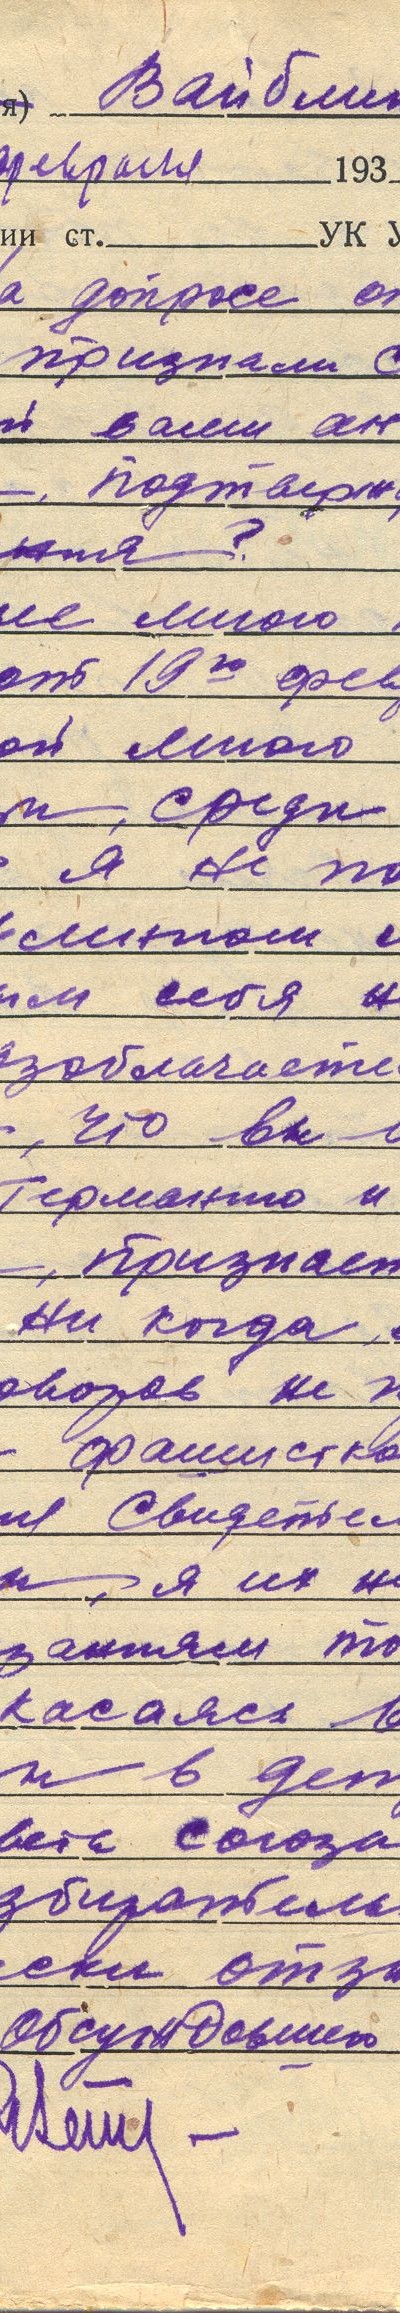 я) Вайблин
февраля 193
ии ст. УК У
а допросе от
признали с
й вами ан
, подтверж
ния ?
ие мною
от 19го фев
ой мною
ти, среди
я не по
блинтом и
им себя н
азоблачаете
, что вы
Германию и
, признает
Ни когда,
оворов не п
фашистко
ия свидетел
н, я их не
заниям то
касаясь в
н в деп
вета союза
збиратель
ски отзы
обсуждавшего